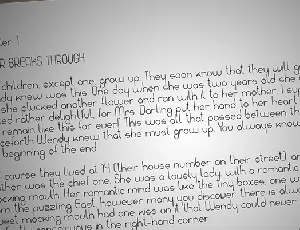 ter 1
R BREAKS THROUGH
children, except one, grow up. They soon know that they will g
dy knew was this. One day when she was two years old she
she plucked another flower and ran with it to her mother. I sup
ked rather delightful, for Mrs Darling put her hand to her heart
remain like this for ever!' This was all that passed between th
ceforth Wendy knew that she must grow up. You always know
beginning of the end.
course they lived at 14 (their house number on their street) an
ther was the chief one. She was a lovely lady, with a romantic
ocking mouth. Her romantic mind was like the tiny boxes, one w
om the puzzling East, however many you discover there is alway
weet mocking mouth had one kiss on it that Wendy could never
conspicuous in the right-hand corner.